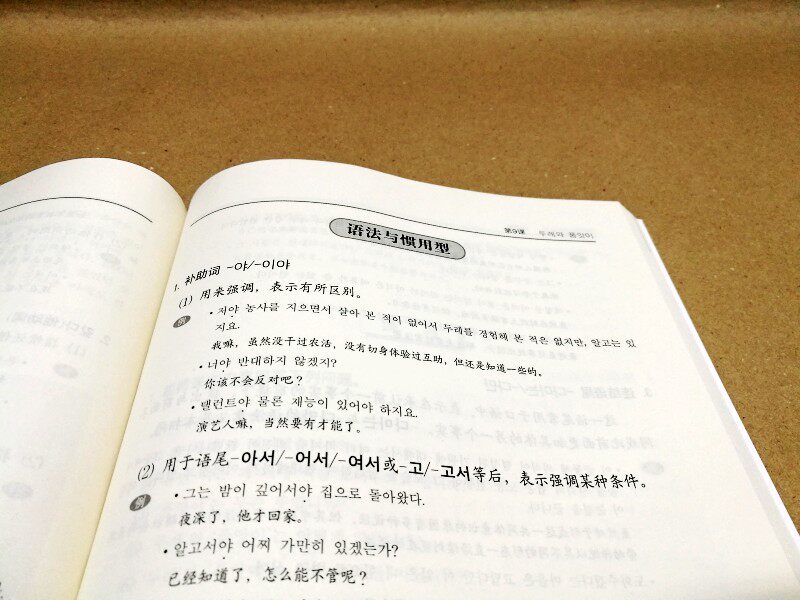 第9课 두레와 품앗이
语法与惯用型
1. 补助词 -야/-이야
(1) 用来强调，表示有所区别。
例 • 저야 농사를 지으면서 살아 본 적이 없어서 두레를 경험해 본 적은 없지만, 알고는 있
지요.
我嘛，虽然没干过农活，没有切身体验过互助，但还是知道一些的。
• 너야 반대하지 않겠지?
你该不会反对吧？
• 탤런트야 물론 재능이 있어야 하지요.
演艺人嘛，当然要有才能了。
(2) 用于语尾-아서/-어서/-여서或-고/-고서等后，表示强调某种条件。
例 • 그는 밤이 깊어서야 집으로 돌아왔다.
夜深了，他才回家。
• 알고서야 어찌 가만히 있겠는가?
已经知道了，怎么能不管呢？